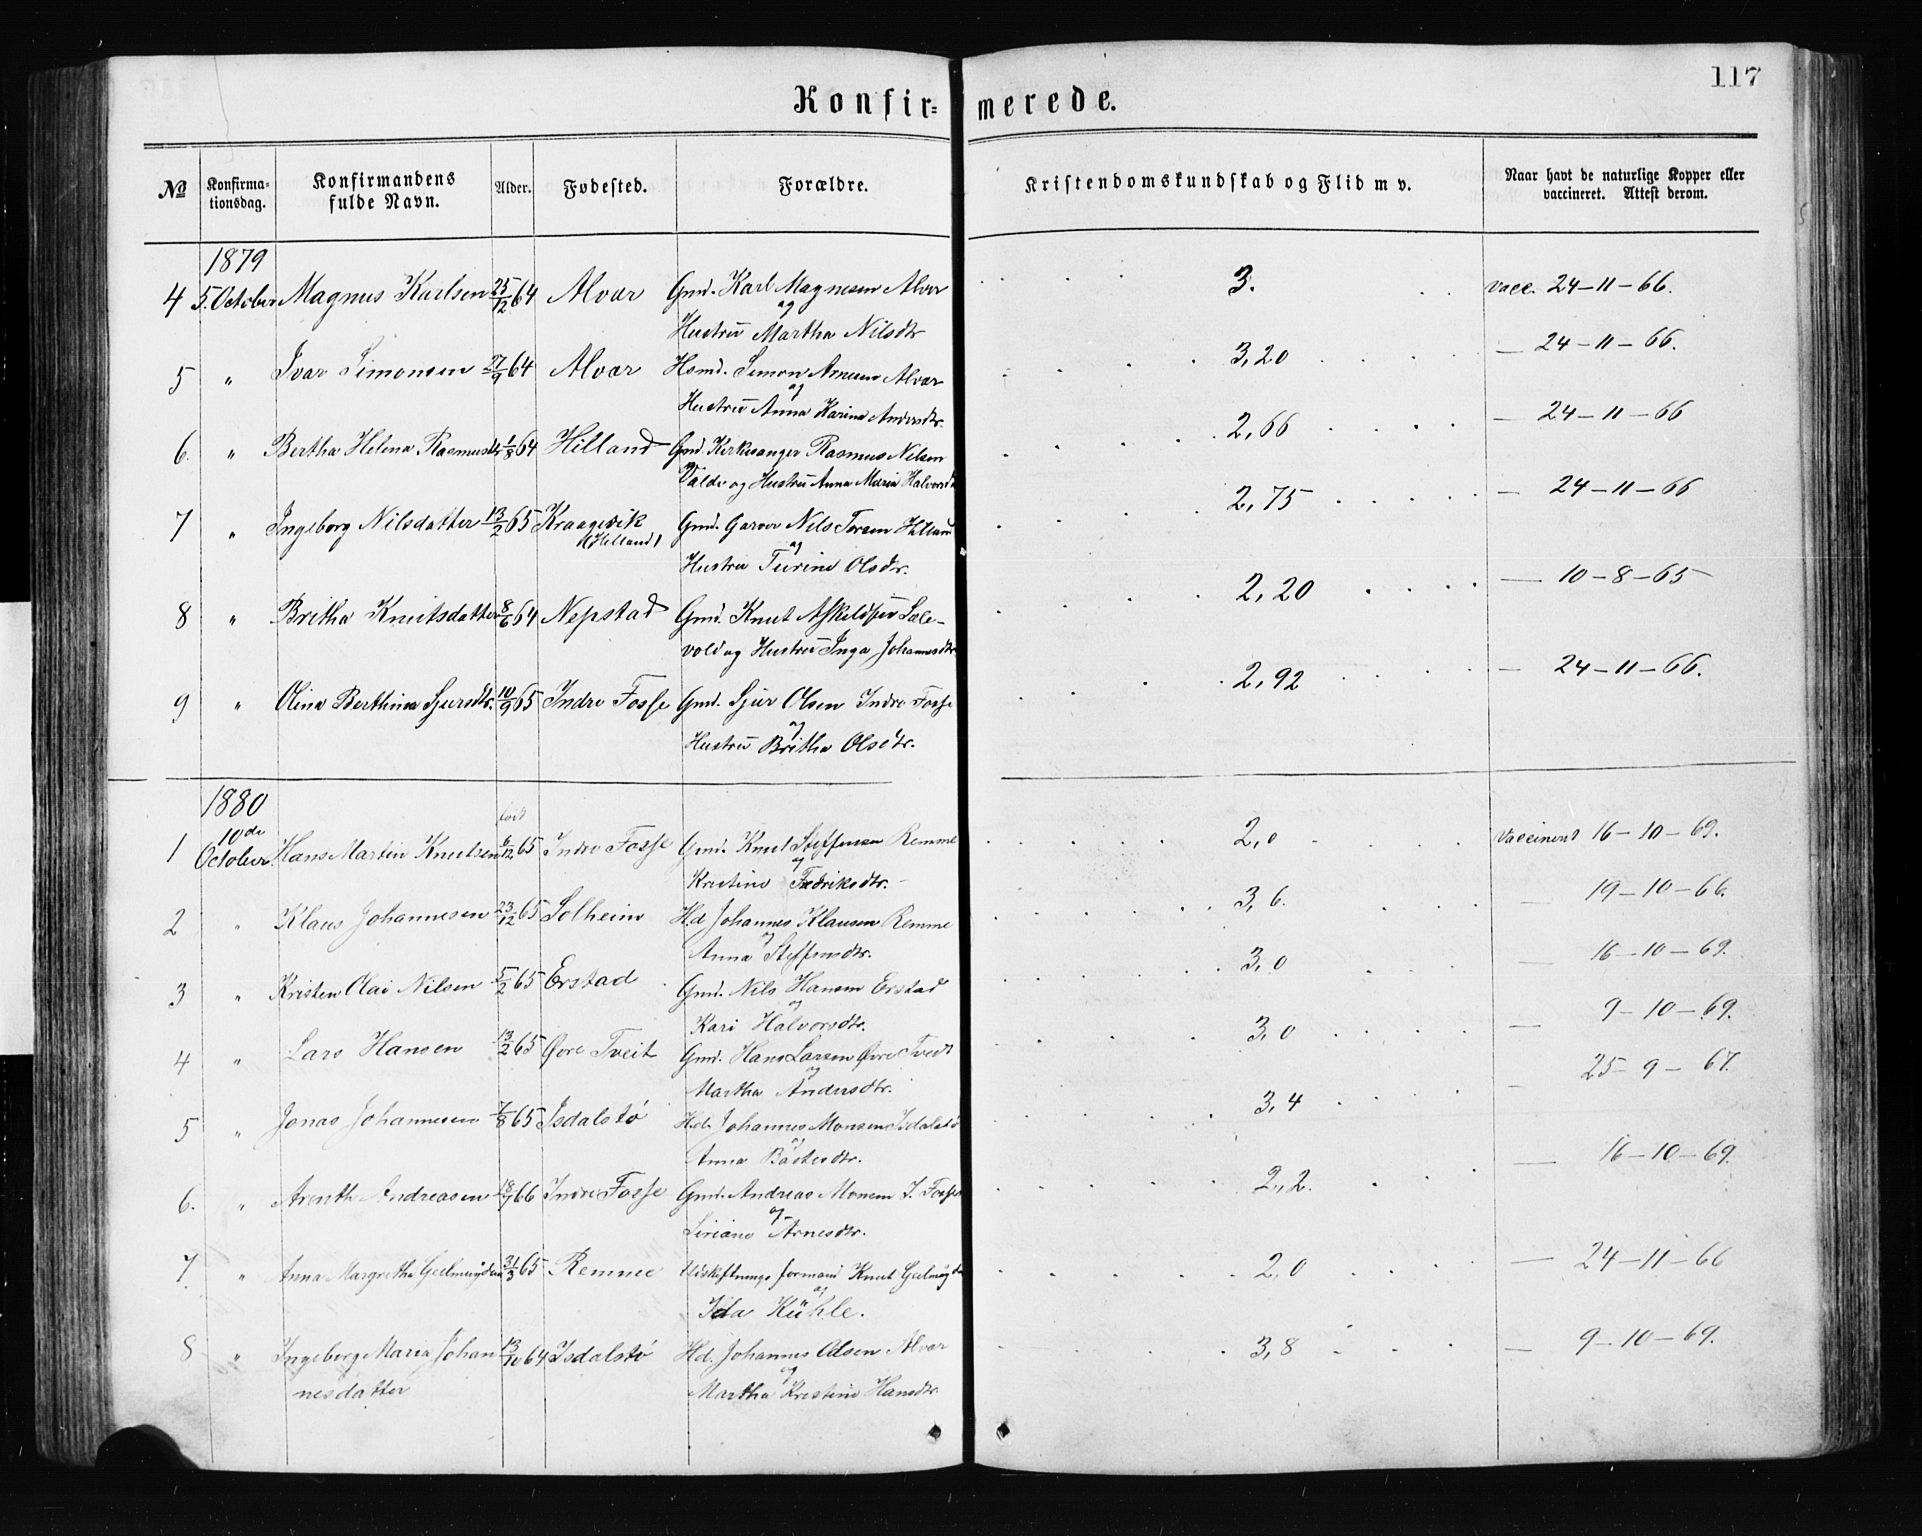 117
Konfir= merede.
№ Konfirma-tionsdag. Konfirmandens fulde Navn. Alder. Fødested. Forældre. Kristendomskundskab og Flid m v. Naar havt de naturlige Kopper eller vaccineret. Attest derom.
1879
4 5. October Magnus Karlsen 25/12 64 Alvær Gmd. Karl Magnesen Alvær 3. vacc. 24-11-66.
og
Hustru Martha Nilsdtr
5 " Ivar Simonsen 27/9 64 Alvær Hsmd. Simon Arnesen Alvær 3,20 — 24-11-66.
og
Hustru Anna Karina Andersdtr.
6. " Bertha Helena Rasmusdtr 1/8 64 Hilland Gmd. Kirkesanger Rasmus Nilsen 2,66 — 24-11-66
Valde og Hustru Anna Maria Halvorsdtr
7 " Ingeborg Nilsdatter 13/2 65 Kraagevik Gmd. Garver Nils Torsen Hilland 2,75 — 24-11-66
(Hilland) og
Hustru Turine Olsdtr.
8 " Britha Knutsdatter 8/6 64 Nepstad Gmd. Knut Askeldsen Sale- 2,20 — 10-8-65
vold og Hustru Inga Johannesdtr.
9 " Olina Berthina Sjursdtr. 10/9 65 Indre Fosse Gmd. Sjur Olsen Indre Fosse 2,92 — 24-11-66.
og
Hustru Britha Olsdtr.
1880
født
1 10de October Hans Martin Knutsen 6/12 65 Indre Fosse Gmd. Knut Steffensen Remme 2,0 Vaccineret 16-10-69.
og
Kristine Fredriksdtr.
2 " Klaus Johannesen 23/12 65 Solheim Hd. Johannes Klausen Remme 3,6. — 19-10-66.
og
Anna Steffensdtr.
3 " Kristen Olai Nilsen 5/2 65 Erstad Gmd. Nils Hansen Erstad 3,0 — 16-10-69.
og
Kari Halvorsdtr.
4 " Lars Hansen 13/2 65 Øvre Tveit Gmd. Hans Larsen Øvre Tvedt 3,0 — 9-10-69.
og
Martha Andersdtr.
5 " Jonas Johannesen 7/8 65 Isdalstø Hd. Johannes Monsen Isdalstø 3,4 — 25-9-67.
og
Anna Bastesdtr.
6. " Arenth Andreasen 18/7 66 Indre Fosse Gmd. Andreas Monsen I. Fosse 2,2. — 16-10-69.
og
Siriane Arnesdtr.
7. " Anna Margretha Geelmuyden 31/3 65 Remme Udskiftnings formand Knut Geelmuyden 2,0 — 24-11-66
og
Ida Kühle.
8 " Ingeborg Maria Johan 13/10 64 Isdalstø Hd. Johannes Olsen Alvær 3,8 — 9-10-69.
og
nesdatter Martha Kristine Hansdtr.